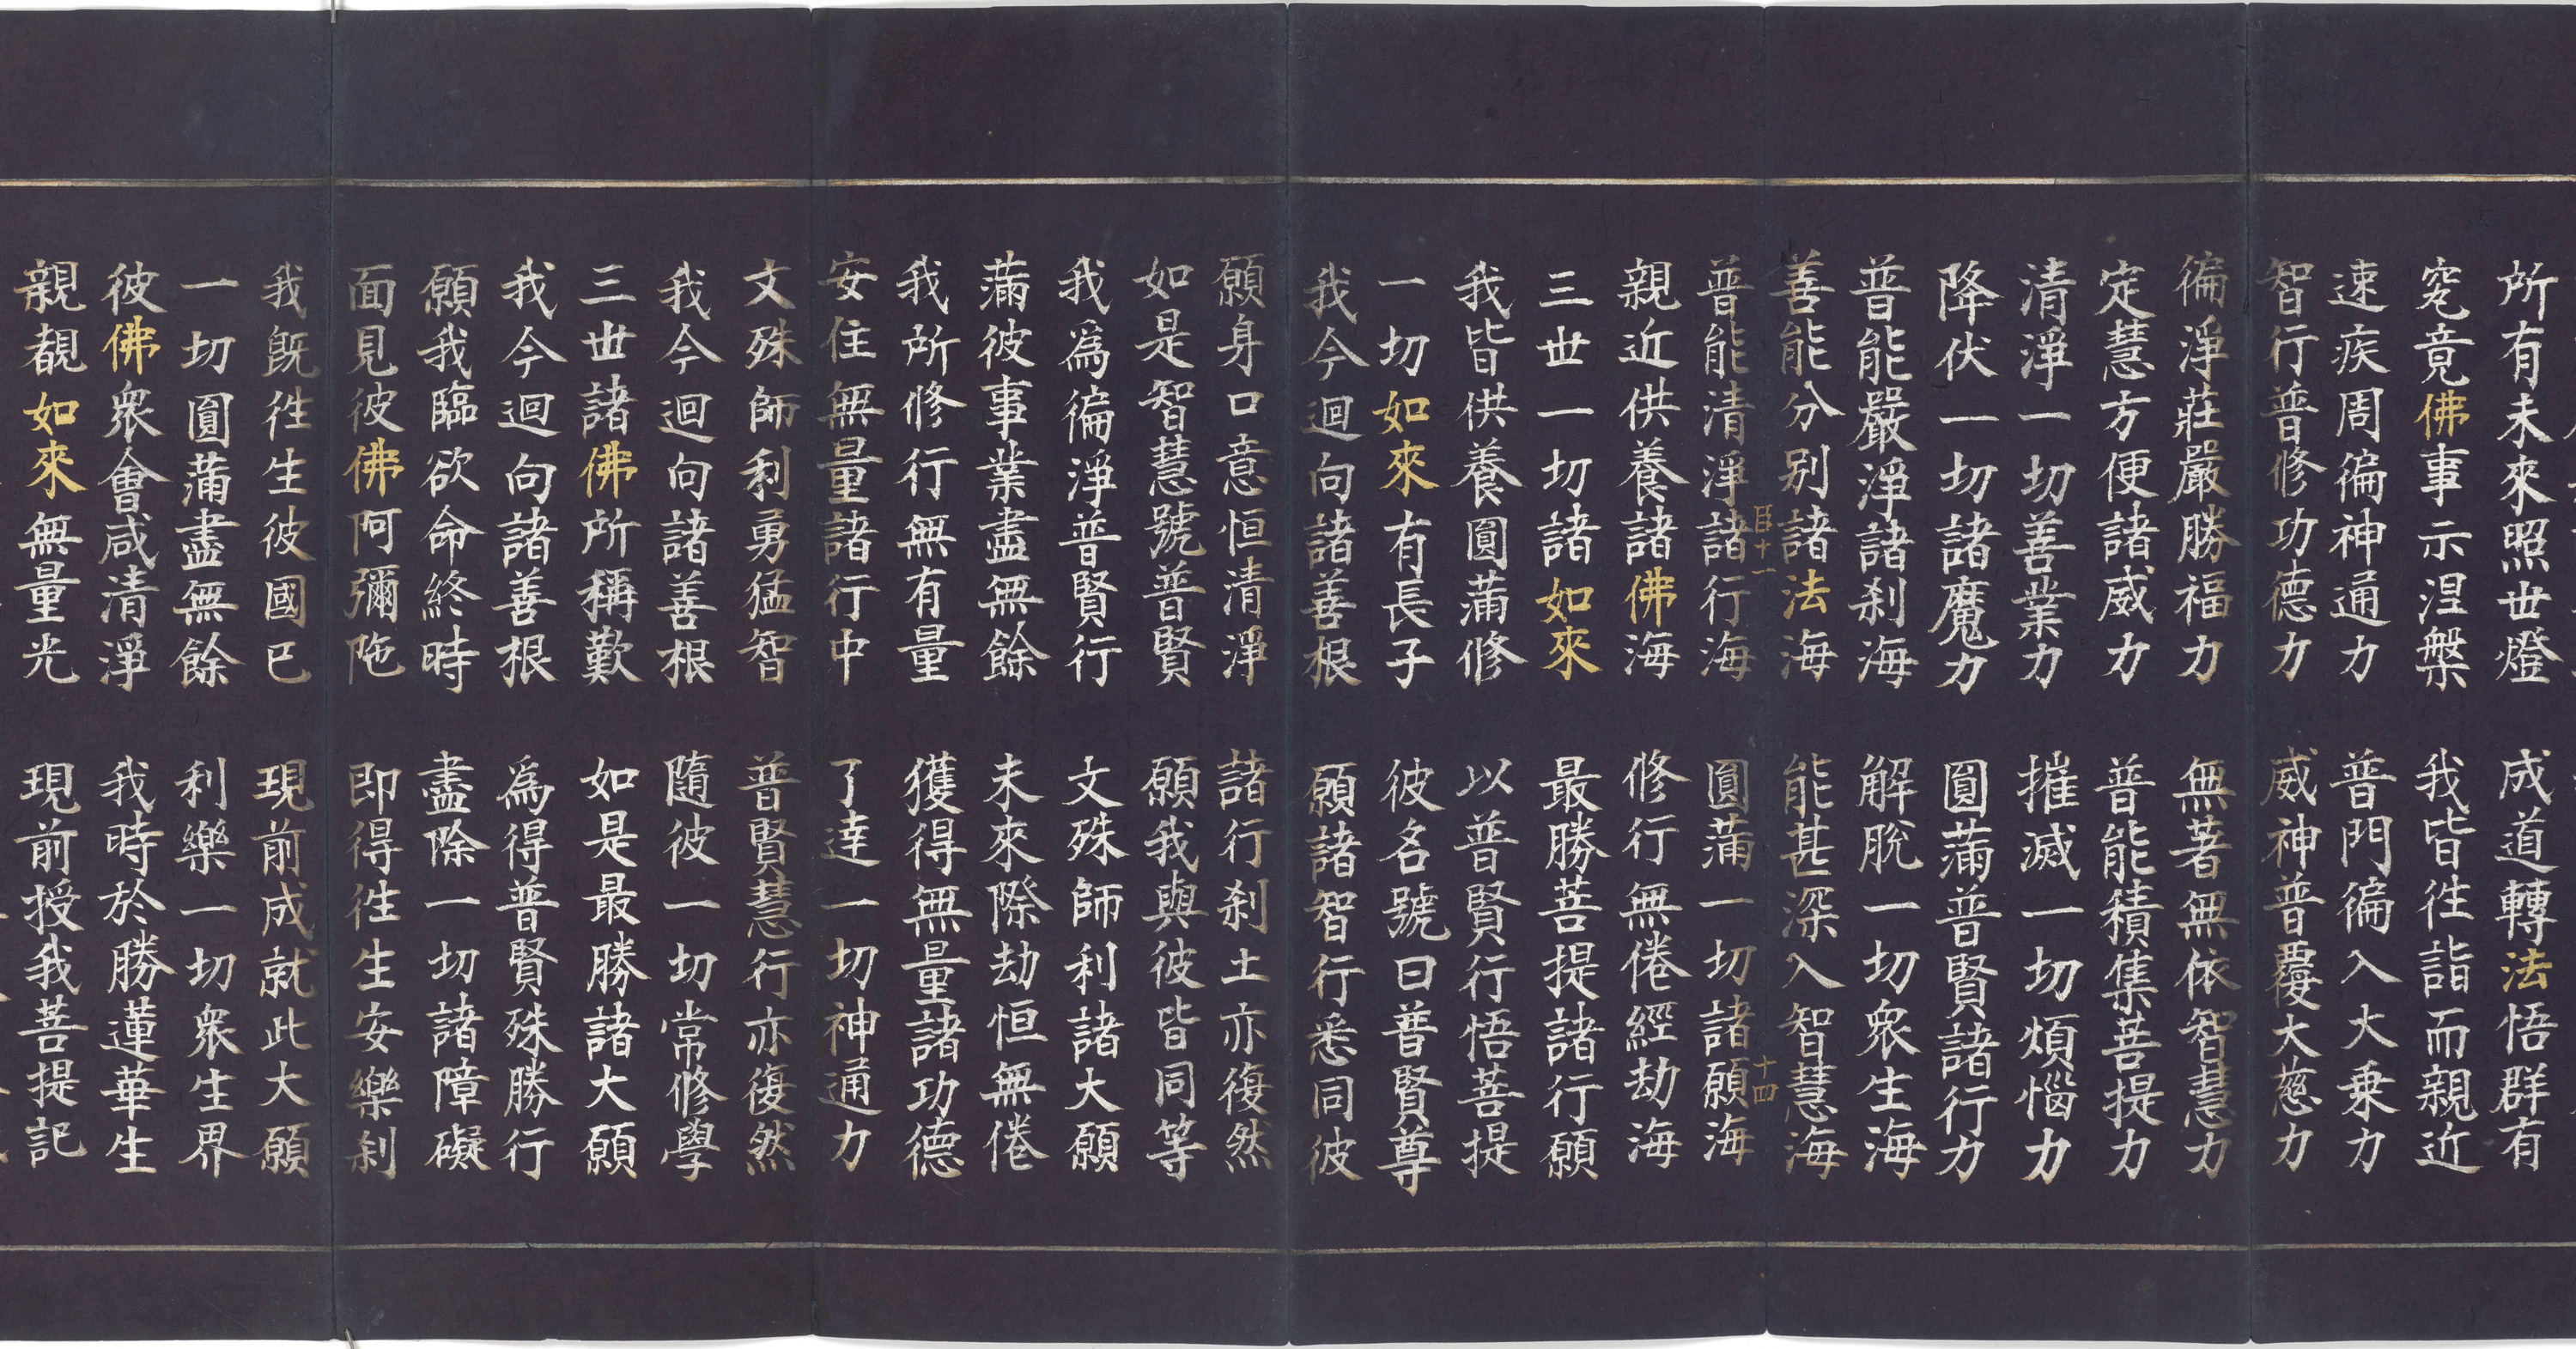 所有未來照世燈　成道轉法悟群有
究竟佛事示涅槃　我皆往詣而親近
速疾周徧神通力　普門徧入大乗力
智行普修功德力　威神普覆大慈力
徧淨莊嚴勝福力　無著無依智慧力
定慧方便諸威力　普能積集菩提力
清淨一切善業力　摧滅一切煩惱力
降伏一切諸魔力　圓滿普賢諸行力
普能嚴淨諸刹海　解脫一切衆生海
善能分别諸法海　能甚深入智慧海
臣十一　十四
普能清淨諸行海　圓滿一切諸願海
親近供養諸佛海　修行無倦經劫海
三世一切諸如來　最勝菩提諸行願
我皆供養圓滿修　以普賢行悟菩提
一切如來有長子　彼名號曰普賢尊
我今迴向諸善根　願諸智行悉同彼
願身口意恒清淨　諸行刹土亦復然
如是智慧號普賢　願我與彼皆同等
我爲徧淨普賢行　文殊師利諸大願
滿彼事業盡無餘　未來際劫恒無倦
我所修行無有量　獲得無量諸功德
安住無量諸行中　了達一切神通力
文殊師利勇猛智　普賢慧行亦復然
我今迴向諸善根　隨彼一切常修學
三世諸佛所稱歎　如是最勝諸大願
我今迴向諸善根　爲得普賢殊勝行
願我臨欲命終時　盡除一切諸障礙
面見彼佛阿彌陁　即得往生安樂刹
我旣往生彼國已　現前成就此大願
一切圓滿盡無餘　利樂一切衆生界
彼佛衆會咸清淨　我時於勝蓮華生
親覩如來無量光　現前授我菩提記